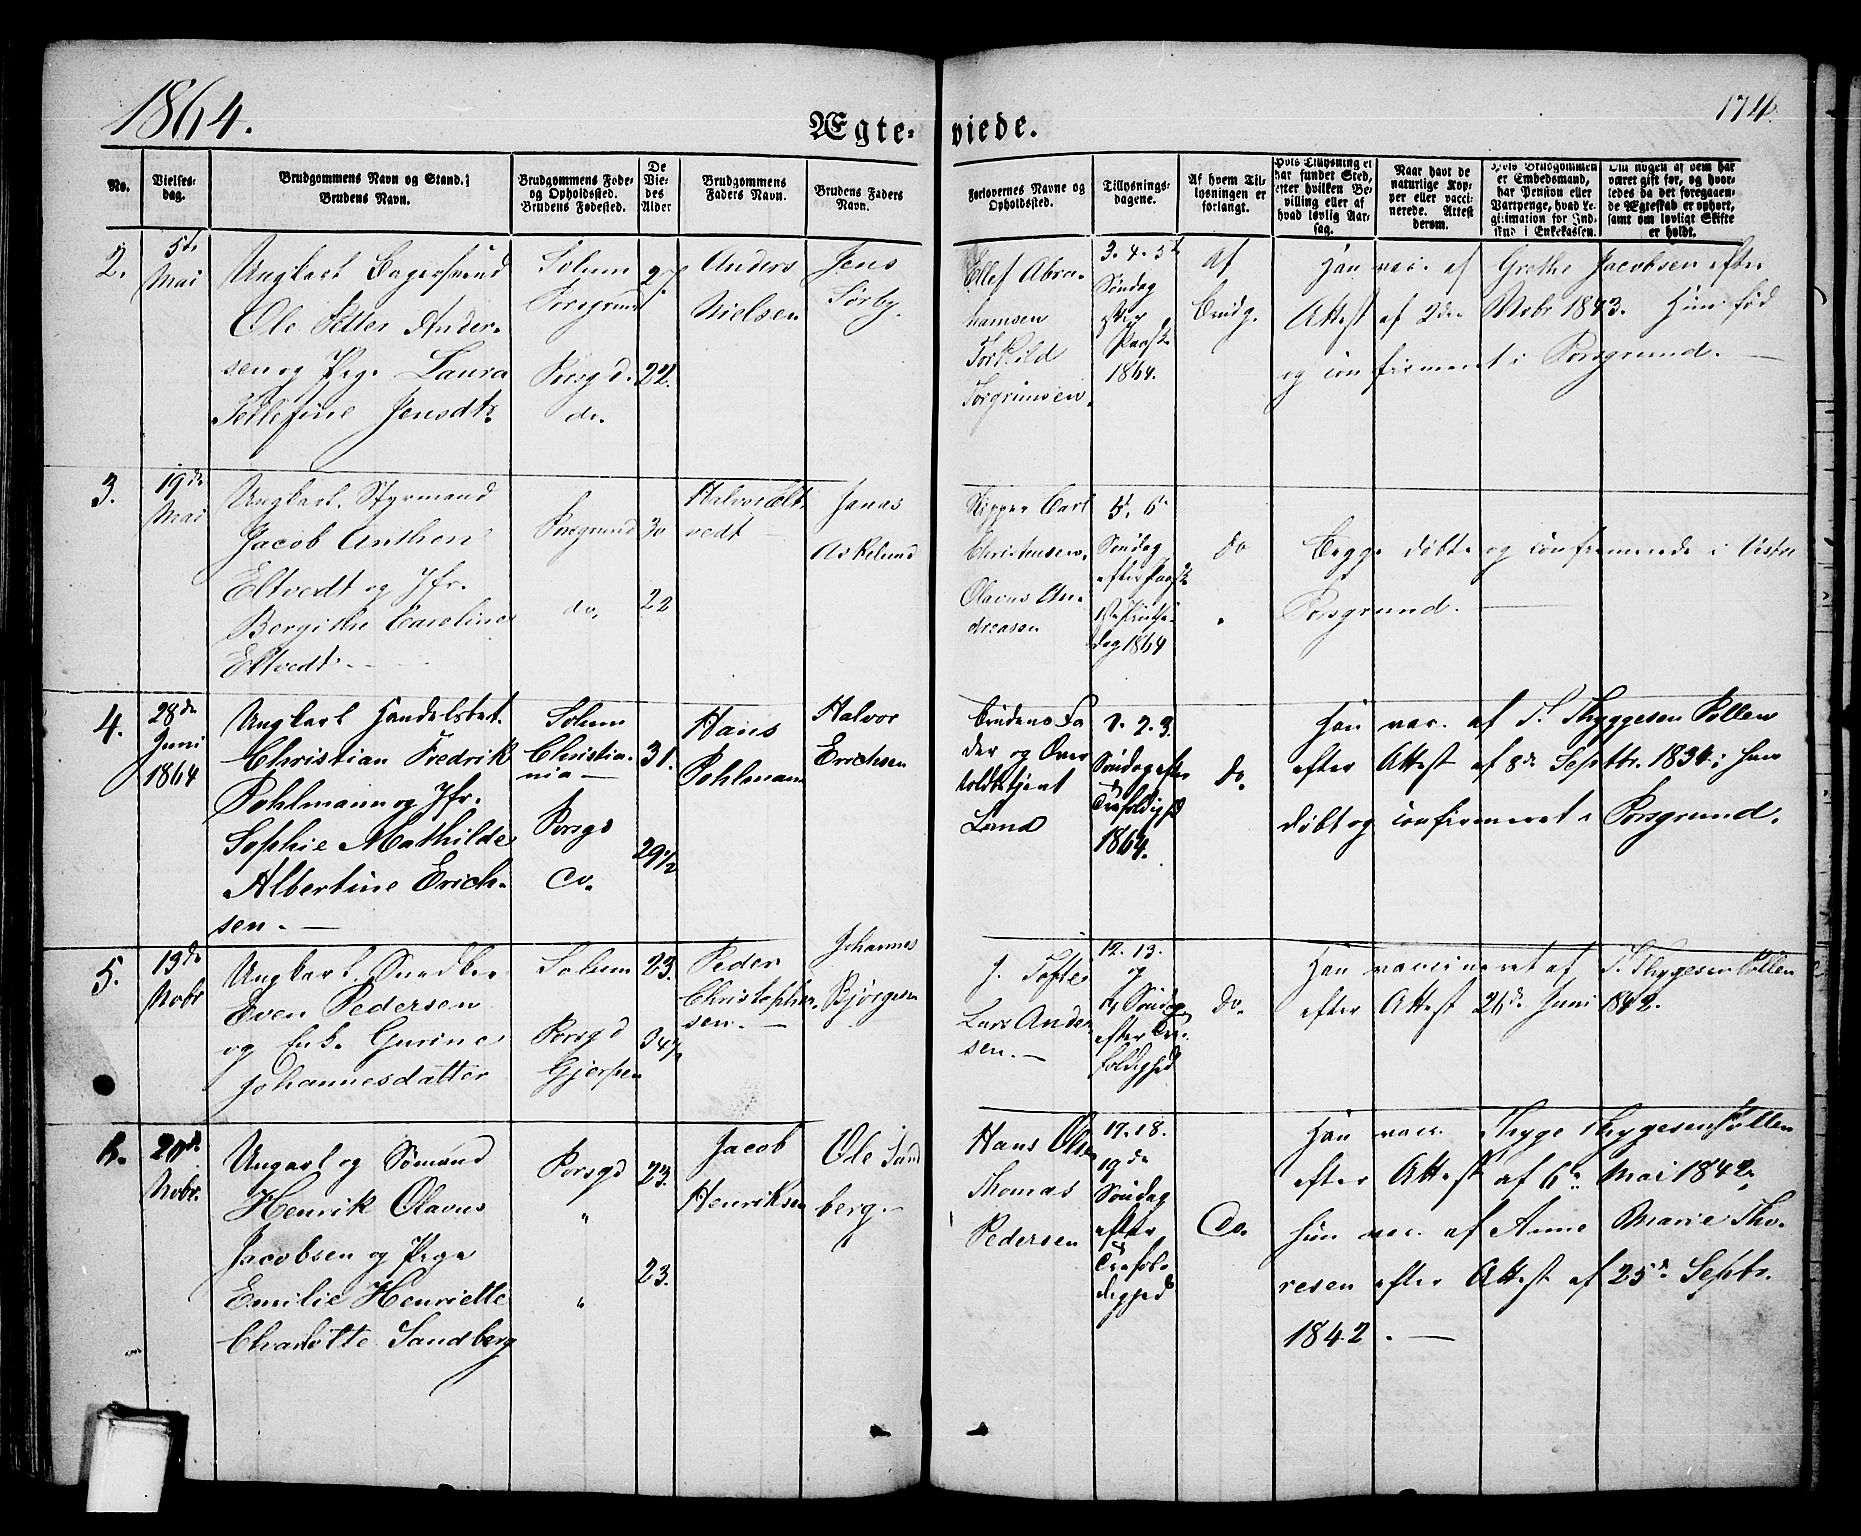 1864.
174.
Ægte-
viede.
No.
Vielses-
dag.
Brudgommens Navn og Stand.
Brudens Navn.
Brudgommens Føde-
og Opholdssted.
Brudens Fødested.
De
Vie-
des
Alder
Brudgommens
Faders Navn.
Brudens Faders
Navn.
Forlovernes Navne og
Opholdssted.
Tillysnings-
dagene.
Af hvem Til-
lysningen er
forlangt.
Hvis Tillysning ei
har fundet Sted,
efter hvilken Be-
villing eller af
hvad lovlig Aar-
sag.
Naar havt de
naturlige Kop-
per eller vacci-
nerede. Attest
derom.
Hvis Brudgommen
er Embedsmand,
har Pension eller
Vartpenge, hvad Le-
gitimation for Ind-
skud i Enkekassen.
Om nogen af dem har
været gift før, og hvor-
ledes da det foregaaen-
de Ægteskab er ophørt,
samt om lovligt Skifte
er holdt.
2.
5te
Mai
Ungkarl Bagersvend
Ole Petter Ander-
sen og Pige Laura
Tellefine Jensdtr.
Solum
Porsgrund
Porsgd.
do.
27.
22.
Anders
Nielsen
Jens
Sørby.
Ellef Abra-
hamsen
Torkild
Torgrimsen.
3. 4. 5te
Søndag
efter
Paaske
1864.
af
Brudg.
Han vac. af Grethe Jacobsen efter
Attest af 2den Novbr 1843. Hun fød
og confirmeret i Porsgrund. —
3.
19de
Mai
Ungkarl. Styrmand
Jacob Anthon
Eltvedt og Jfr.
Bergithe Caroline
Eltvedt. —
Porsgrund
do.
30
22
Halvor Elt-
vedt
Jonas
Askelund
Skipper Carl
Christensen.
Olavus An-
dreasen
5. 6.
Søndag
efter Paaske
1864
do
Begge døbte og confirmerede i Vestre
Porsgrund. —
4.
28de
Juni
1864
Ungkarl Handelsbet.
Christian Fredrik
Pohlmann og Jfr.
Sophie Mathilde
Albertine Erich-
sen. —
Solum
Christia-
nia —
Porsgd
do.
31.
29½
Hans
Pohlmann
Halvor
Erichsen
Brudens Fa-
der og Over
toldbetjent
Lund
1. 2. 3.
Søndag efter
Trefoldighd
1864.
do.
Han vac. af T. Thyggesen Pollen
efter Attest af 8de Septbr. 1834; hun
døbt og confirmeret i Porsgrund.
5.
13de
Novbr
Ungkarl Snedker
Even Pedersen
og Enke Gurine
Johannesdatter
Solum
Porsgd
Gjerpen
23.
34½
Peder
Christophers-
sen. —
Johannes
Bjørgesen
J. Tofte
Lars Ander-
sen. —
12. 13.
og
14 Søndag
efter Tre-
foldighed
do.
Han vaccineret af T. Thygesen Pollen
efter Attest 26de Juni 1842.
6.
20de
Novbr.
Ungkarl og Sømand
Henrik Olavus
Jacobsen og Pige
Emilie Henriette
Charlotte Sandberg
Porsgd
"
"
23.
23.
Jacob
Henriksen
Ole Sand
berg. —
Hans Olsen
Thomas
Pedersen
17. 18.
19de
Søndag
efter
Trefol-
dighed
do.
Han vacc. Thyge Thygesen Pollen
efter Attest af 6te Mai 1842,
hun vac. af Anne Marie Tho-
resen efter Attest af 25de Septbr.
1842. —